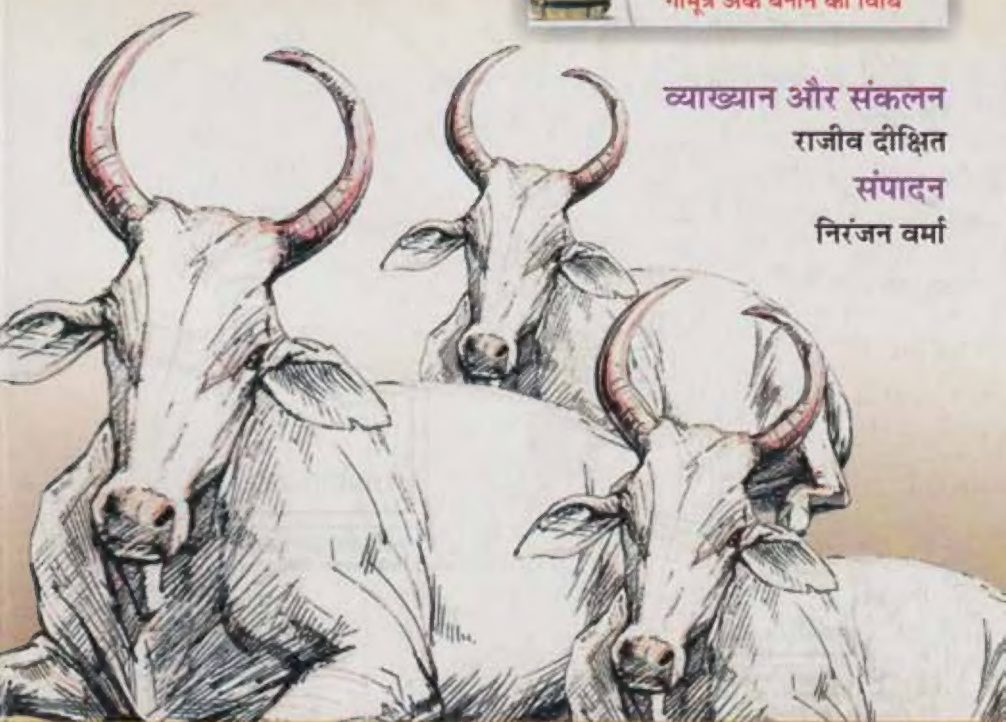 गोमूत्र अर्क बनाने की विधि
व्याख्यान और संकलन
राजीव दीक्षित
संपादन
निरंजन वर्मा